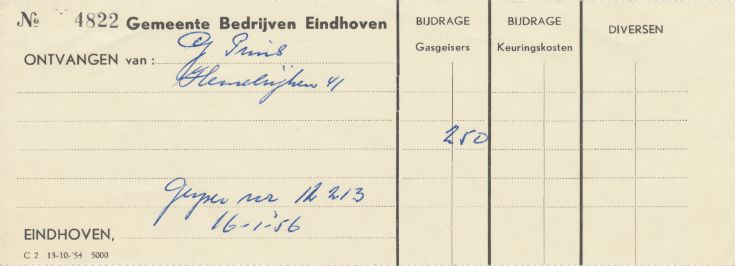 № 4822 Gemeente Bedrijven Eindhoven
BIJDRAGE
Gasgeisers
BIJDRAGE
Keuringskosten
DIVERSEN
ONTVANGEN van : Prins
Hemelrijken 41
250
Geyser nr 12213
16-1-'56
EINDHOVEN,
C 2 13-10-'54 5000